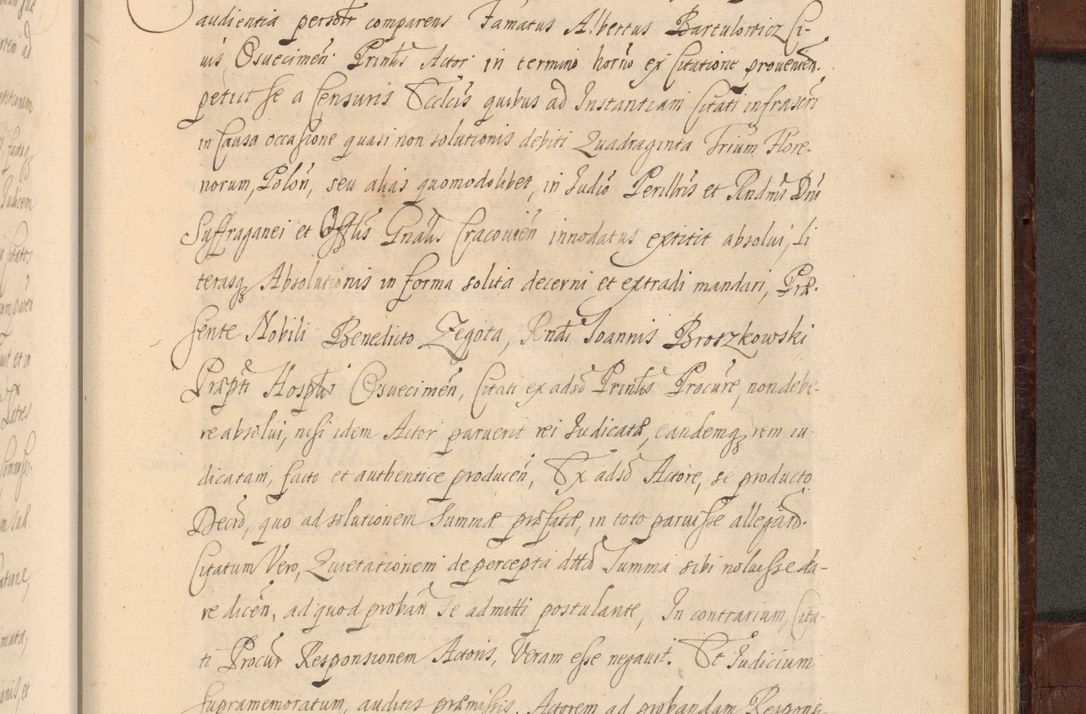 audientia personlr comparens Famatus Albertus Bartulowicz Ci-
uis Osuecimen̄ Prinl̄s Actor in termino horno ex Citatione proueneñ.
petiit se a Censuris Eccleīs quibus ad Instantiam Citati infrascri
in Causa occasione quasi non solutionis debiti Quadraginta Trium Flore-
norum, Polon̄, seu alias quomodolibet, in Iudiō Perillr̄is et Rndm̄i Dn̄i
Suffraganei et Offl̄is Gnal̄is Cracouien̄ innodatus extitit absolui, Li
terasq₃ Absolutionis in forma solita decerni et extradi mandari, Præ-
sente Nobili Benedicto Zegota, Rndi Ioannis Broszkowski
Præpti Hosplis Osuecimen̄, Citati ex adsō Prinlis Procure, non debe-
re absolui, nisi idem Actor paruerit rei Iudicatæ, eandemq₃ rem iu-
dicatam, facto et authentice producen̄, Ex adsō Actore, se producto
Decrō, quo ad solutionem Summæ præfatæ, in toto paruisse allegan̄.
Citatum Vero, Quietationem de percepta dictā Summa sibi noluisse da-
re dicen̄, ad quod proban̄ se admitti postulante, In contrarium, Cita-
ti Procur Responsionem Actoris, Veram esse negauit. Et Iudicium
supramemoratum, auditis præmissis, Actorem ad probandam Respons